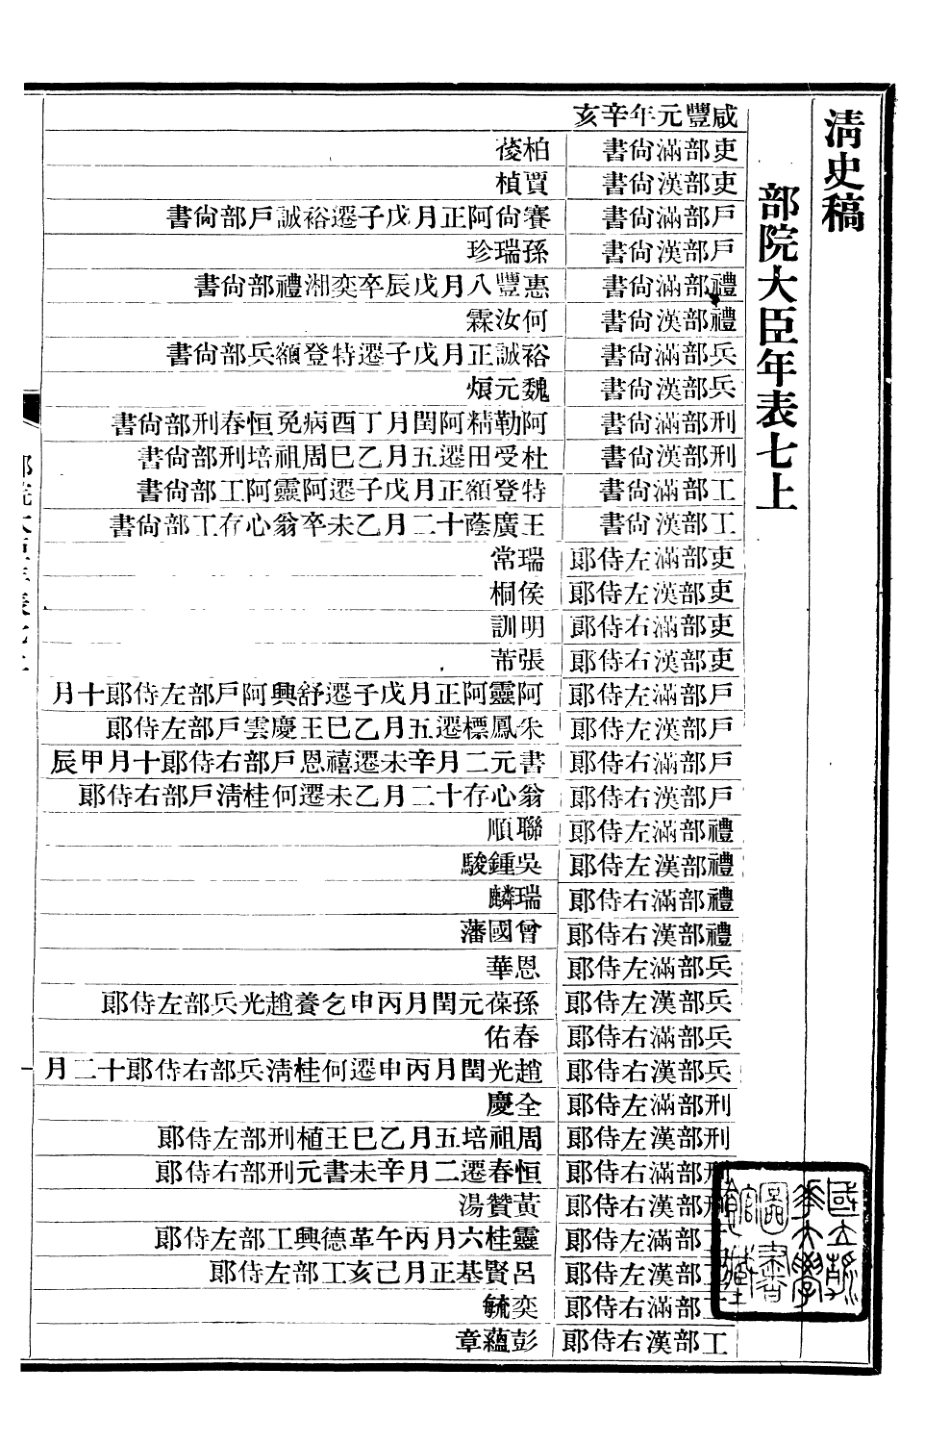 清史稿
部院大臣年表七上
咸豐元年辛亥
吏部滿尙書 柏葰
吏部漢尙書 賈楨
戶部滿尙書 賽尙阿正月戊子遷裕誠戶部尙書
戶部漢尙書 孫瑞珍
禮部滿尙書 惠豐八月戊辰卒奕湘禮部尙書
禮部漢尙書 何汝霖
兵部滿尙書 裕誠正月戊子遷特登額兵部尙書
兵部漢尙書 魏元烺
刑部滿尙書 阿勒精阿閏月丁酉病免恒春刑部尙書
刑部漢尙書 杜受田遷五月乙巳周祖培刑部尙書
工部滿尙書 特登額正月戊子遷阿靈阿工部尙書
工部漢尙書 王廣蔭十二月乙未卒翁心存工部尙書
吏部滿左侍郞 瑞常
吏部漢左侍郞 侯桐
吏部滿右侍郞 明訓
吏部漢右侍郞 張芾
戶部滿左侍郞 阿靈阿正月戊子遷舒興阿戶部左侍郞十月
戶部漢左侍郞 朱鳳標遷五月乙巳王慶雲戶部左侍郞
戶部滿右侍郞 書元二月辛未遷禧恩戶部右侍郞十月甲辰
戶部漢右侍郞 翁心存十二月乙未遷何桂淸戶部右侍郞
禮部滿左侍郞 聯順
禮部漢左侍郞 吳鍾駿
禮部滿右侍郞 瑞麟
禮部漢右侍郞 曾國藩
兵部滿左侍郞 恩華
兵部漢左侍郞 孫葆元閏月丙申乞養趙光兵部左侍郞
兵部滿右侍郞 春佑
兵部漢右侍郞 趙光閏月丙申遷何桂淸兵部右侍郞十二月
刑部滿左侍郞 全慶
刑部漢左侍郞 周祖培五月乙巳王植刑部左侍郞
刑部滿右侍郞 恒春遷二月辛未書元刑部右侍郞
刑部漢右侍郞 黃贊湯
工部滿左侍郞 靈桂六月丙午革德興工部左侍郞
工部漢左侍郞 呂賢基正月己亥工部左侍郞
工部滿右侍郞 奕毓
工部漢右侍郞 彭蘊章
國立淸華大學圖書館藏